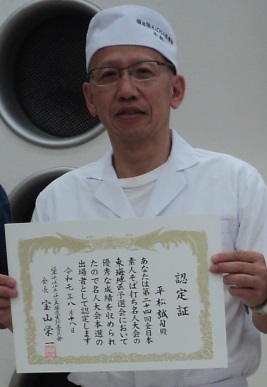 認定証
平松誠司殿
あなたは第二十四回全日本
素人そば打ち名人大会の
東海地区予選会において
優秀な成績を収められ
たので名人大会本選の
出場者として認定します
令和元年八月十八日
会長 宝山栄一